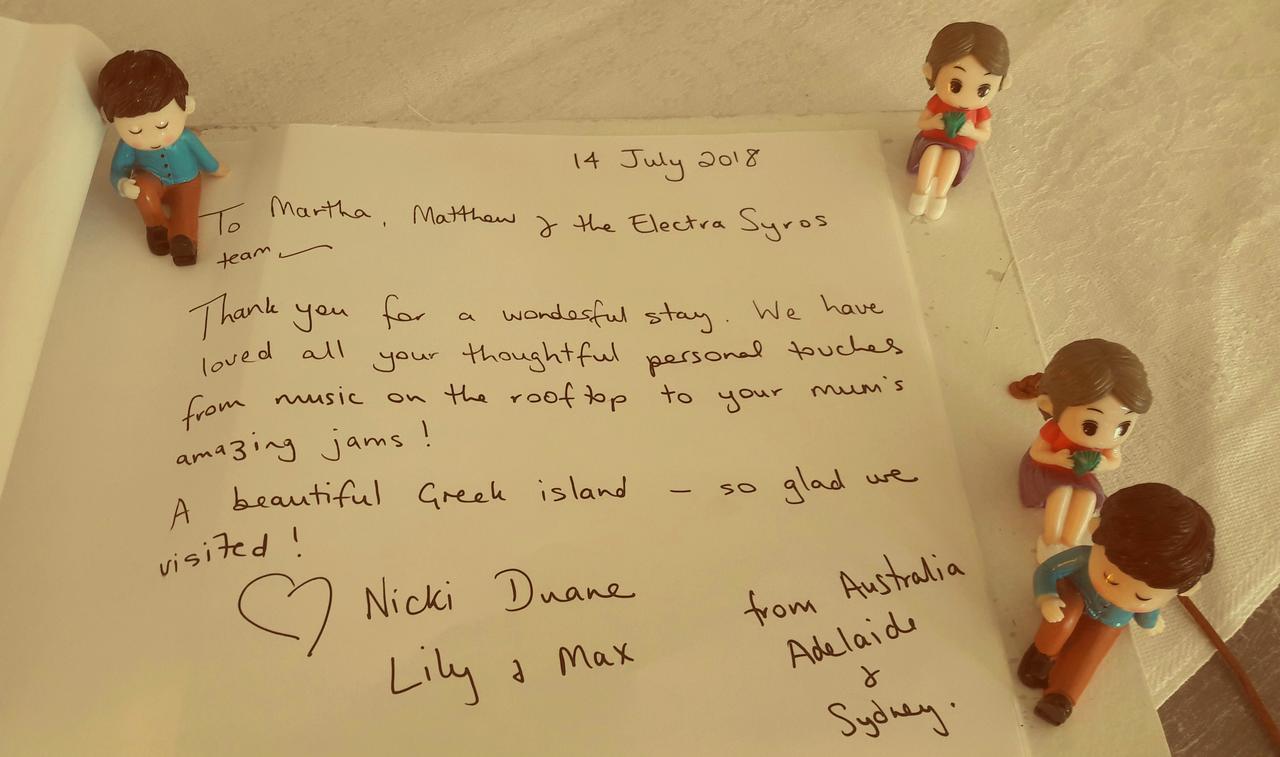 14 July 2018
To Martha, Matthew & the Electra Syros
team
Thank you for a wonderful stay. We have
loved all your thoughtful personal touches
from music on the rooftop to your mum's
amazing jams!
A beautiful Greek island - so glad we
visited!
Nicki Duane
Lily & Max
from Australia
Adelaide
&
Sydney.